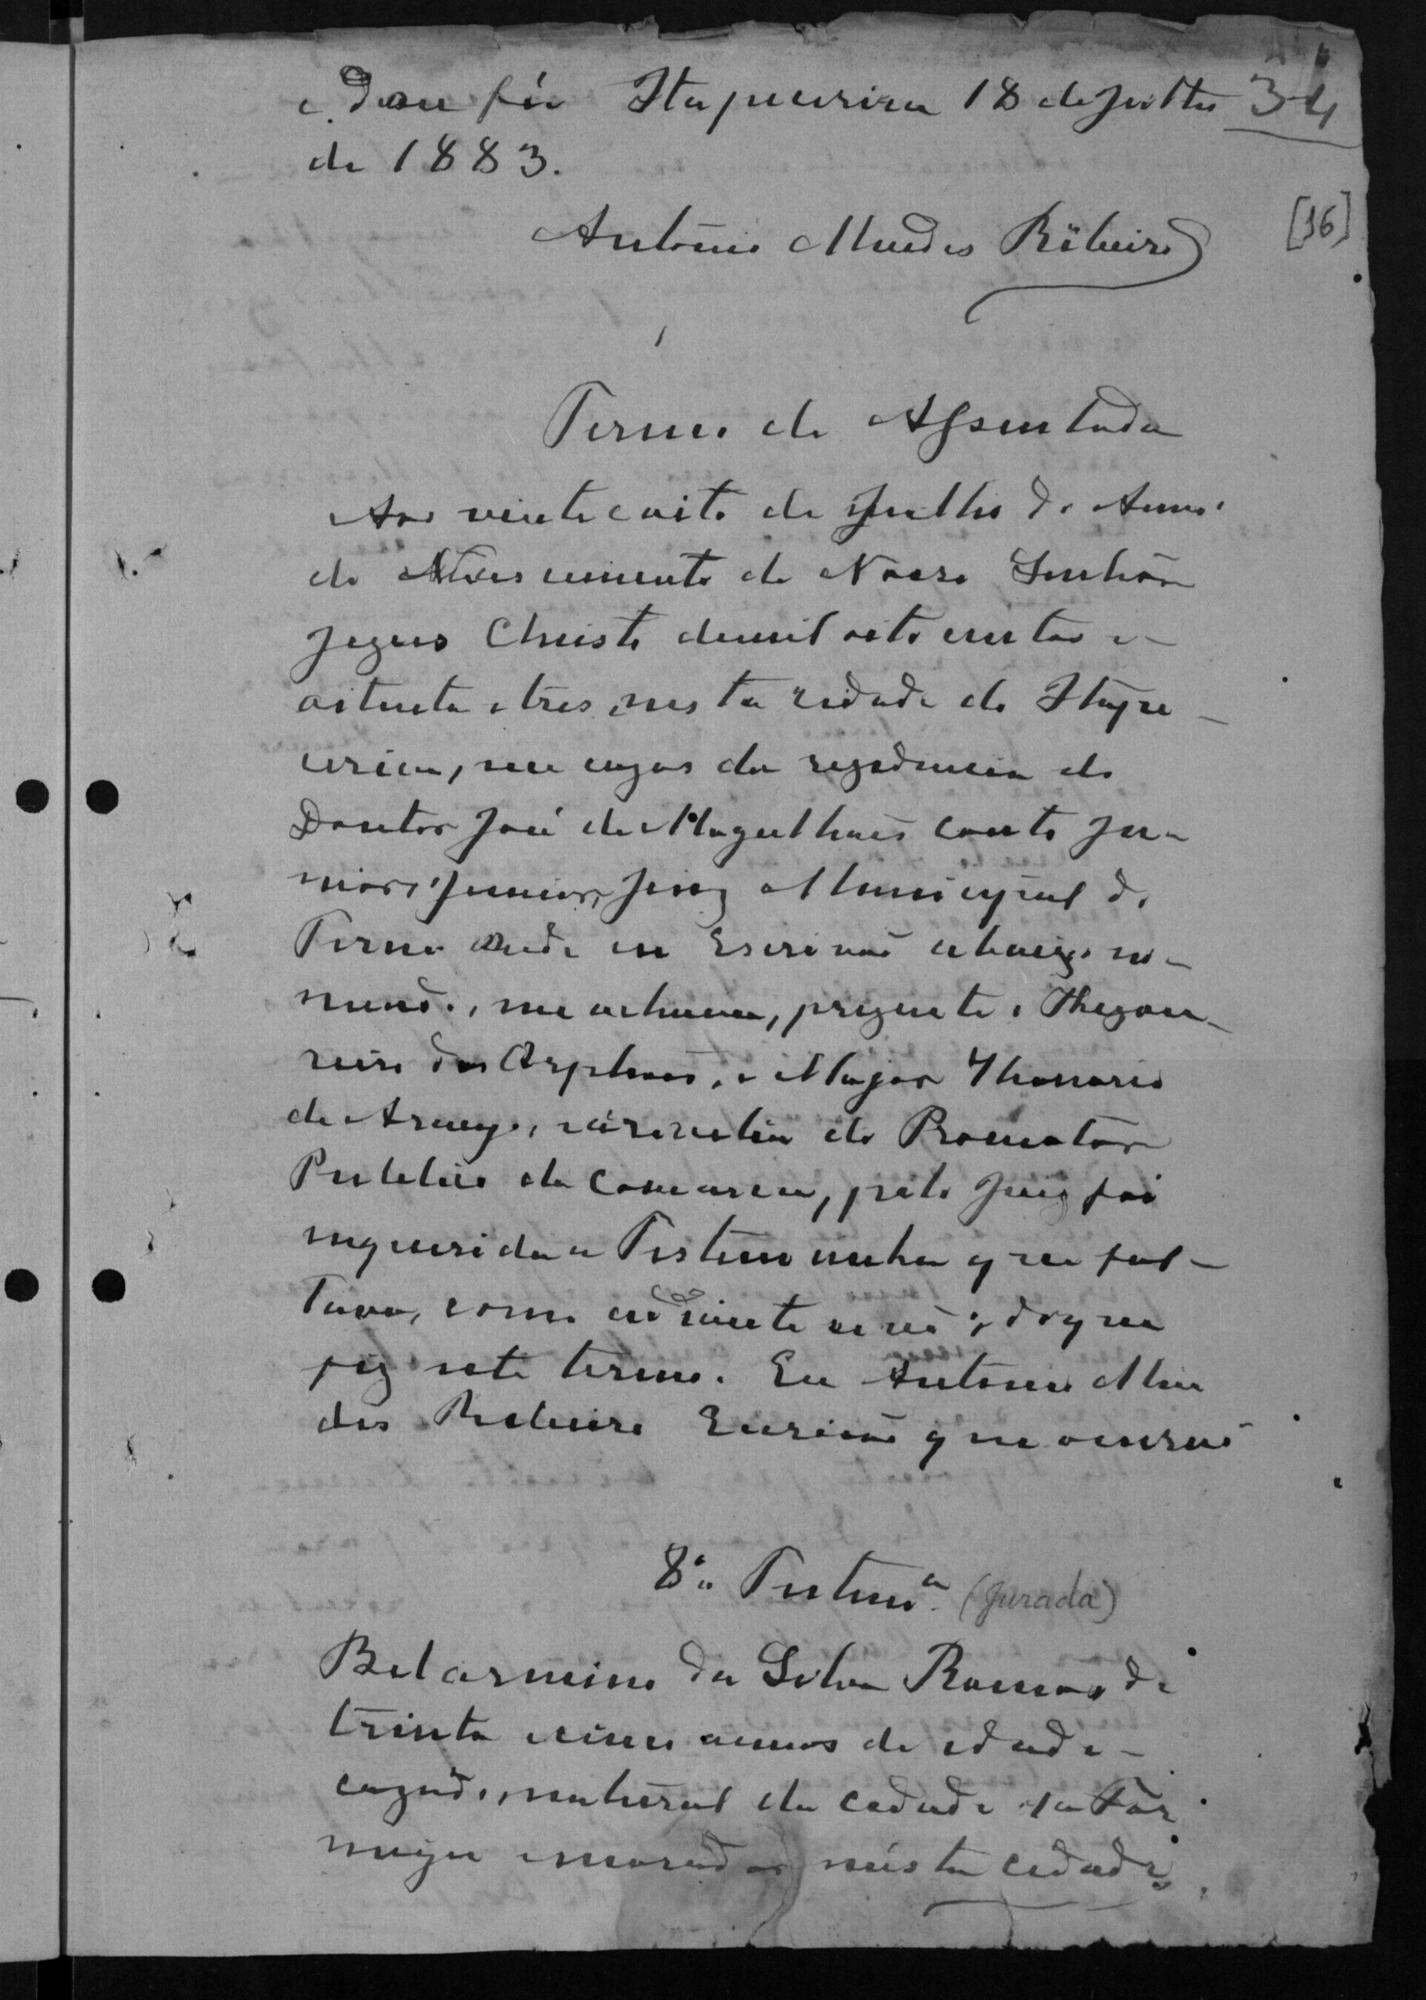 e dou fé Itapucurú 18 de Julho 34
de 1883.
[16]
Antonio Mendes Ribeiro
Termo de Assentada
Aos vinte e oito de Julho do Anno
do Nascimento de Nosso Senhor
Jezus Christo de mil oito centos e
oitenta e tres, nesta cidade do Itapu-
curu, em cazas da rezidencia do
Doutor José de Magalhães Couto Ju-
nior, Juiz Municipal do
Termo onde eu Escrivão abaixo no-
meado, me achava, prezente o Thezou-
reiro dos Orphãos, o Major Honorio
de Araujo, o Promotor
Publico da Comarca, pelo Juiz foi
inquerida a Testemunha que fal-
tava, como adiante se vê; do que
fiz este termo. Eu Antonio Men
des Ribeiro Escrivão que o escrevi
8ª Testemª (Jurada)
Belarmino da Silva Ramos de
trinta e cinco annos de idade
cazado, natural da cidade da For
maga morador nesta cidade